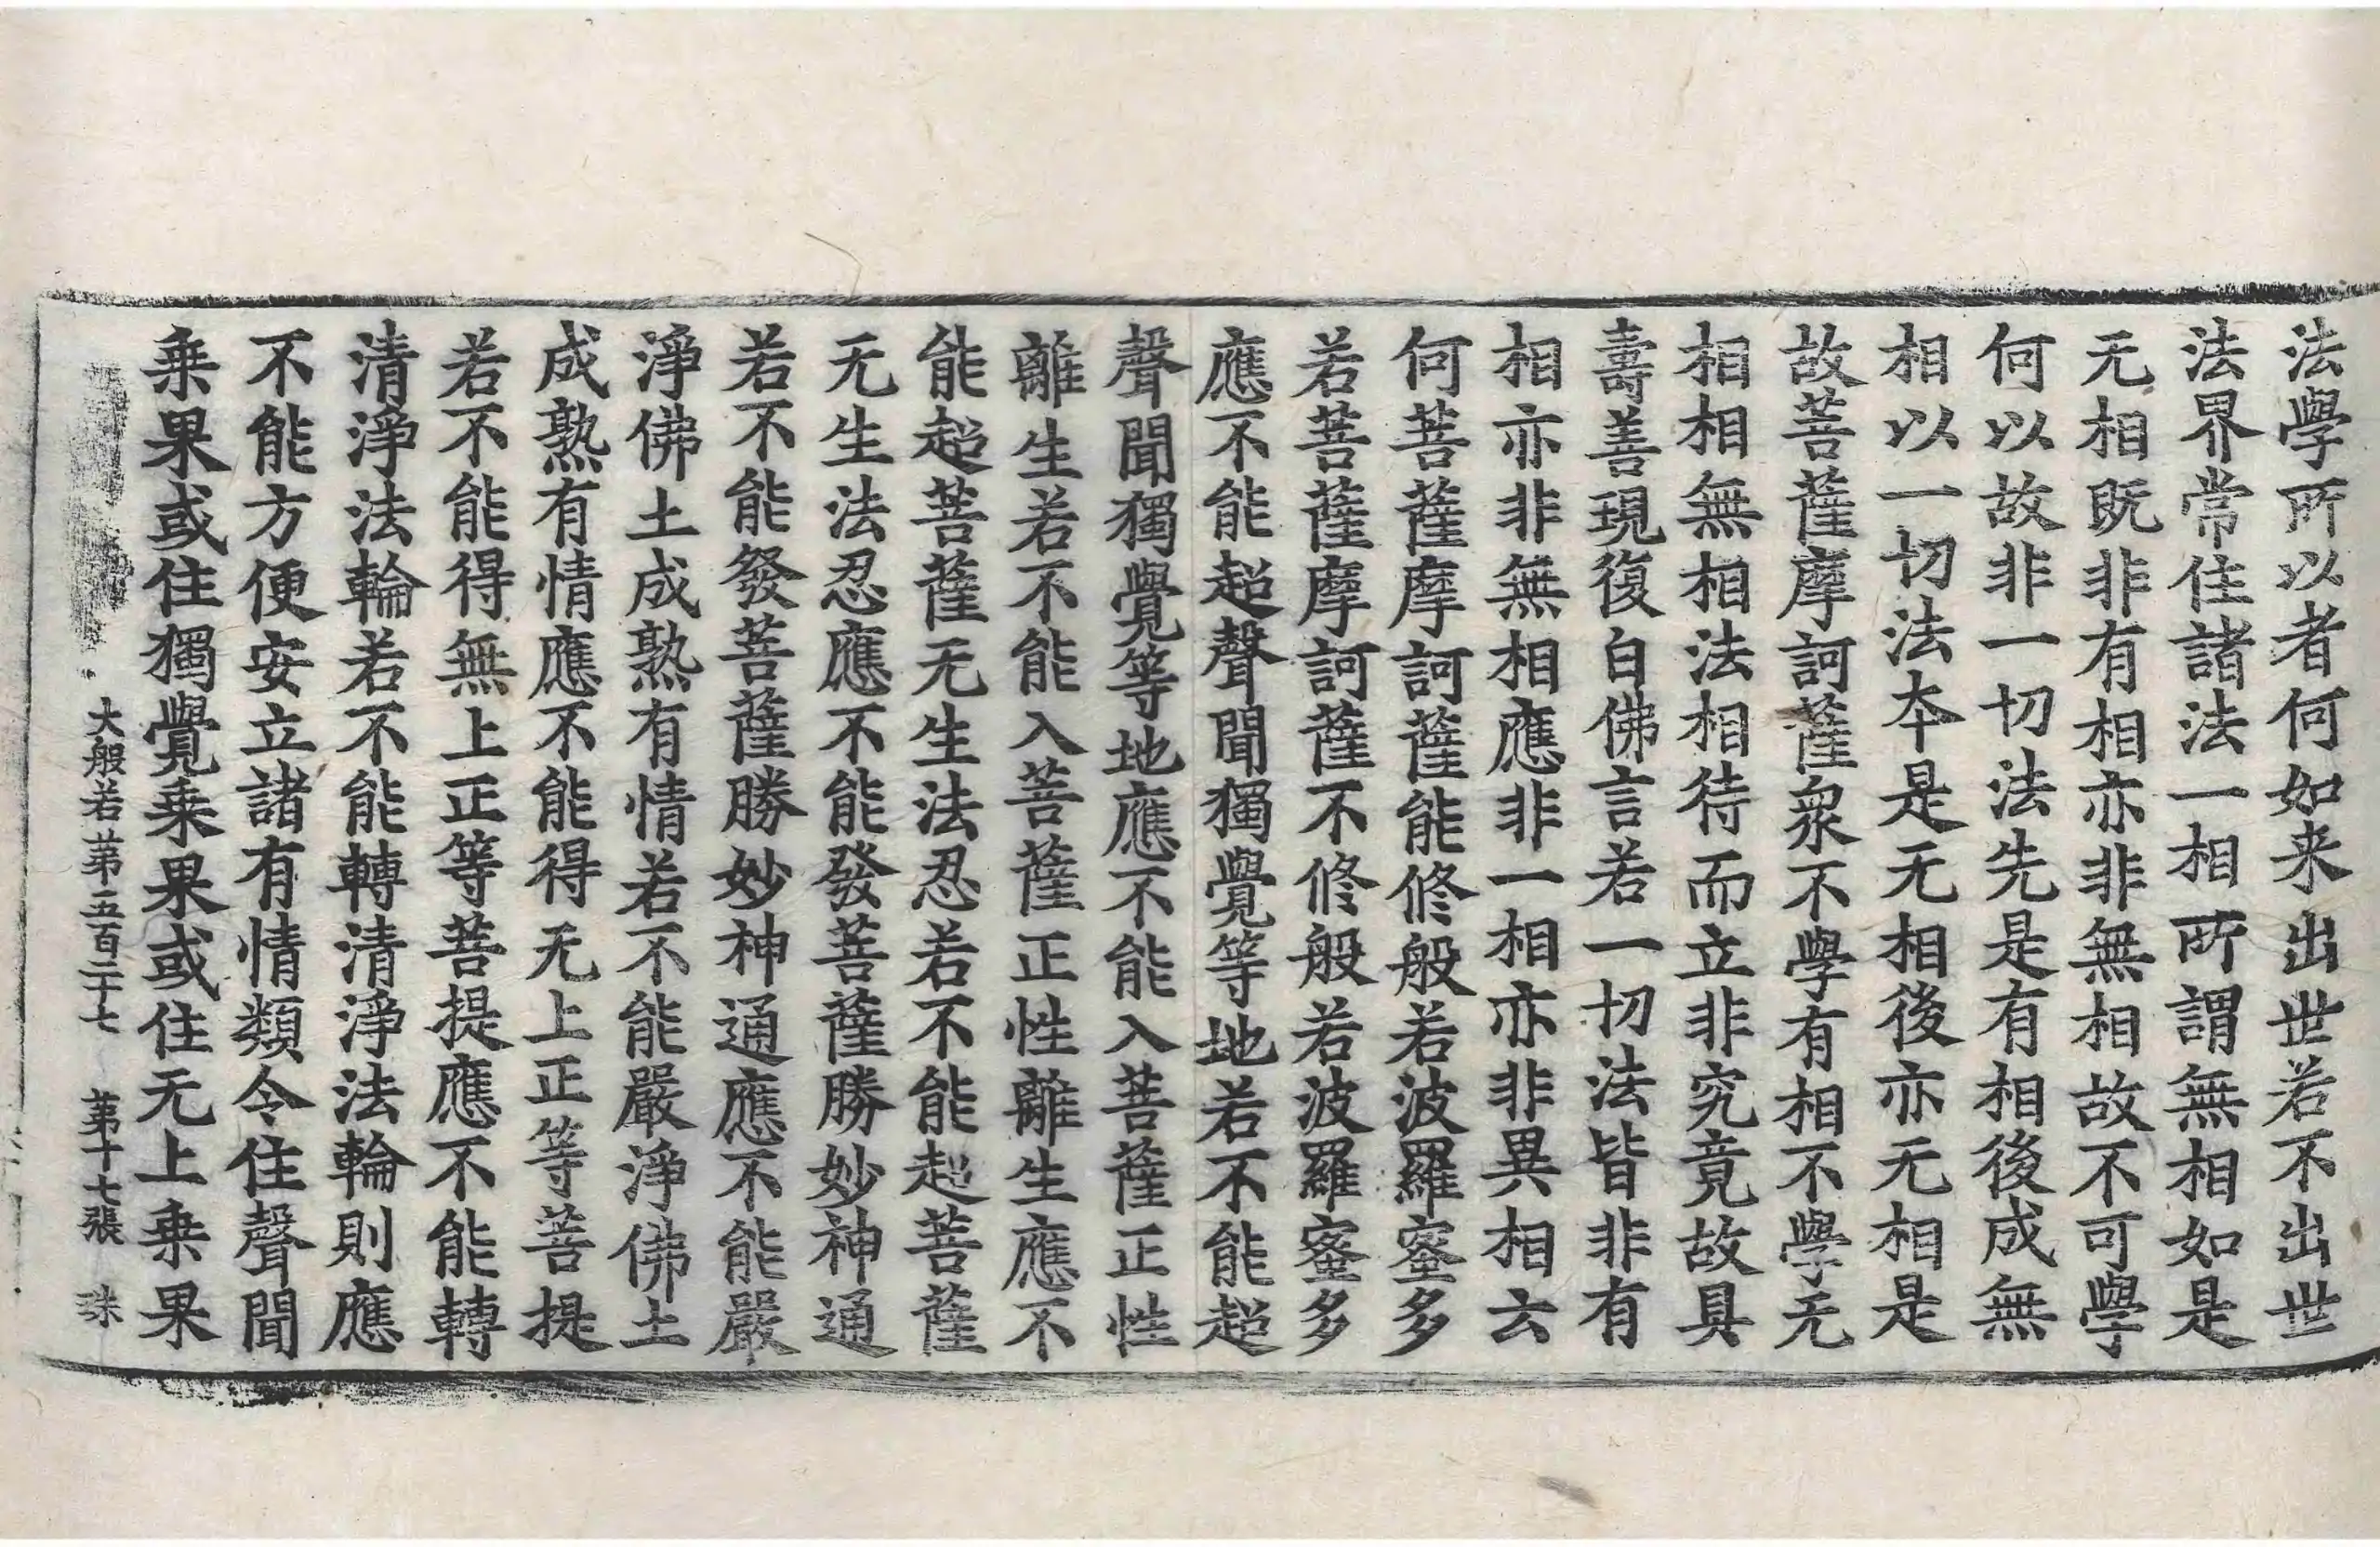 法學所以者何如来出世若不出世
法界常住諸法一相所謂無相如是
无相既非有相亦非無相故不可學
何以故非一切法先是有相後成無
相以一切法本是无相後亦无相是
故菩薩摩訶薩衆不學有相不學无
相相無相法相待而立非究竟故具
壽善現復白佛言若一切法皆非有
相亦非無相應非一相亦非異相云
何菩薩摩訶薩能修般若波羅蜜多
若菩薩摩訶薩不修般若波羅蜜多
應不能超聲聞獨覺等地若不能超
聲聞獨覺等地應不能入菩薩正性
離生若不能入菩薩正性離生應不
能超菩薩无生法忍若不能起菩薩
无生法忍應不能發菩薩勝妙神通
若不能發菩薩勝妙神通應不能嚴
淨佛土成熟有情若不能嚴淨佛土
成熟有情應不能得无上正等菩提
若不能得無上正等菩提應不能轉
清淨法輪若不能轉清淨法輪則應
不能方便安立諸有情類令住聲聞
乗果或住獨覺乗果或住无上乗果
大般若苐五百二十七 苐十七張 珠